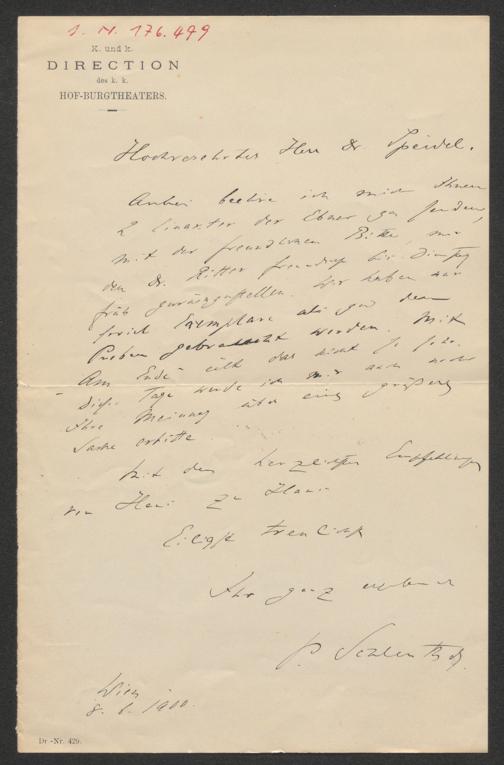 J. N. 176.499
K. und k.
DIRECTION
des k. k.
HOF-BURGTHEATERS.
Hochverehrter Herr Dr. Speidel.
Anbei beehre ich mich Ihnen
2 Einakter der Ebner zu senden,
mit der freundlichen Bitte, mir
den Dr. Ritter bis Dienstag
früh zurückzustellen. Wir haben nur
soviel Exemplare als zu den
Proben gebraucht werden. Mit
"Am Ende" eilt das nicht so sehr.
Dieser Tage werde ich mir auch noch
Ihre Meinung über eine größere
Sache erbitten
Mit den herzlichsten Empfehlungen
von Haus zu Haus
Eiligst
Ihr ganz ergebener
P. Schlenther.
Wien
8. 6. 1900.
Dr.-Nr. 429.